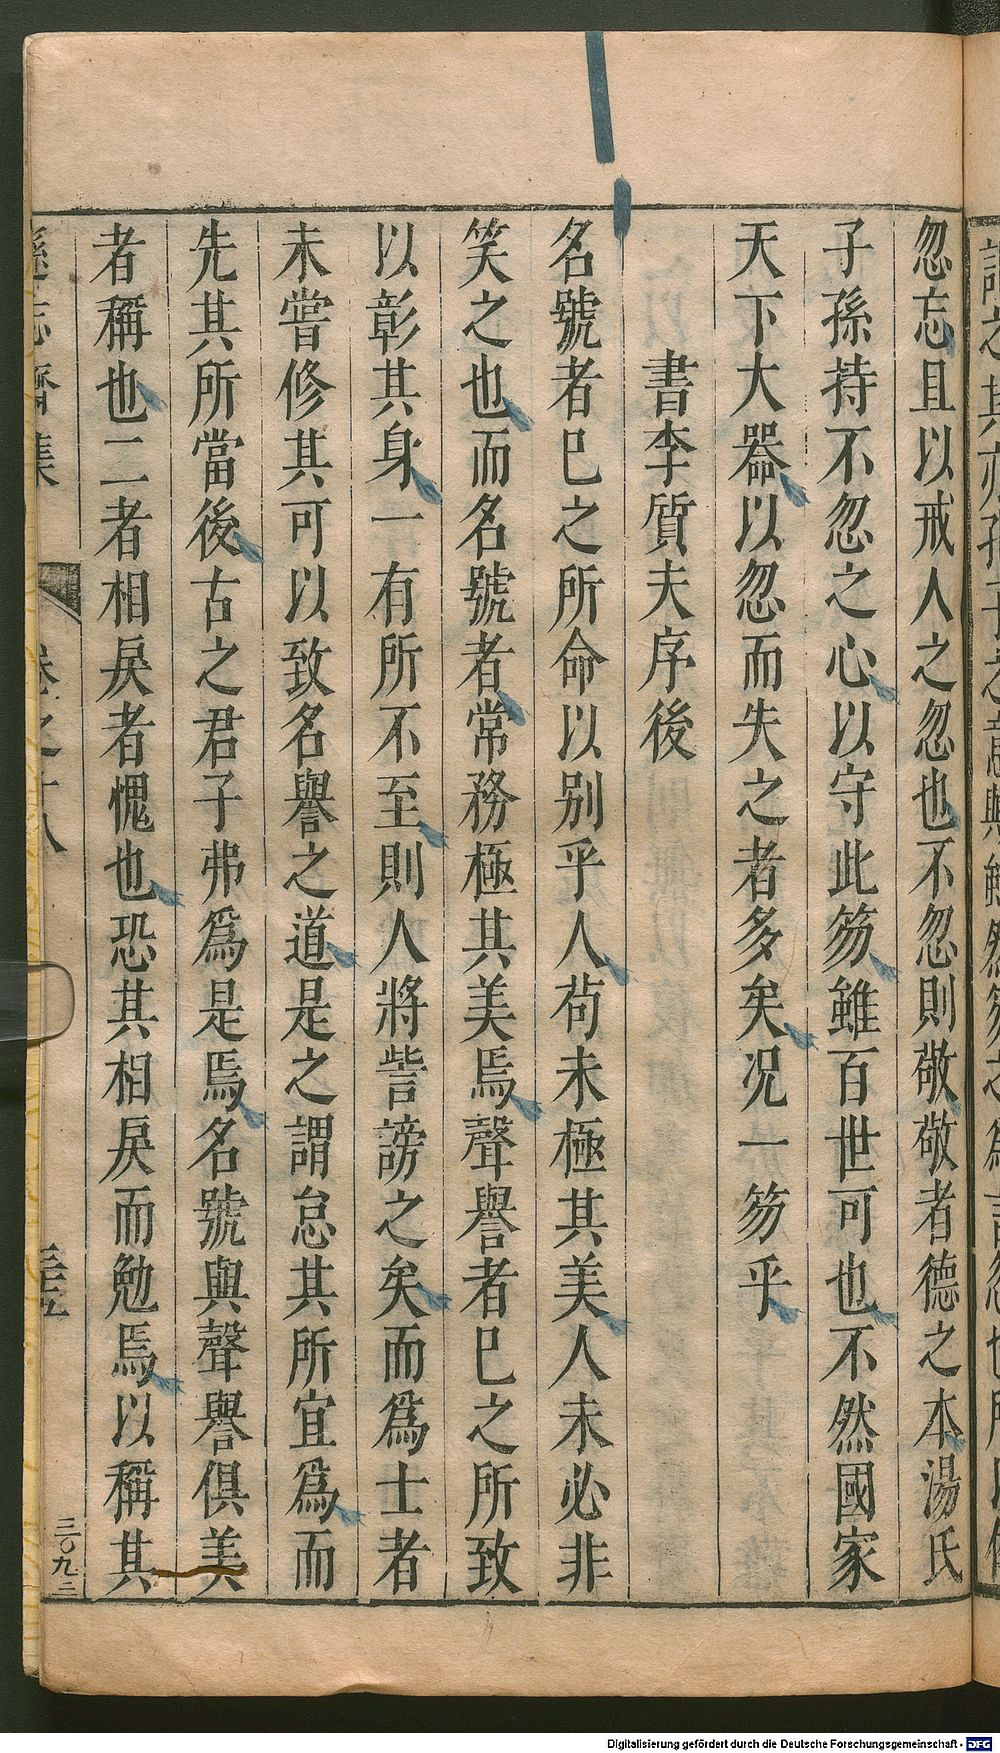 忽忘且以戒人之忽也不忽則敬敬者德之本湯氏
子孫持不忽之心以守此笏雖百世可也不然國家
天下大器以忽而失之者多矣况一笏乎
書李質夫序後
名號者巳之所命以別乎人苟未極其美人未必非
笑之也而名號者常務極其美焉聲譽者巳之所致
以彰其身一有所不至則人將訾謗之矣而爲士者
未嘗修其可以致名譽之道是之謂怠其所宜爲而
先其所當後古之君子弗爲是焉名號與聲譽俱美
者稱也二者相戾者愧也恐其相戾而勉焉以稱其
遜志齋集
卷之十八
三十五
三〇九二
Digitalisierung gefördert durch die Deutsche Forschungsgemeinschaft - DFG